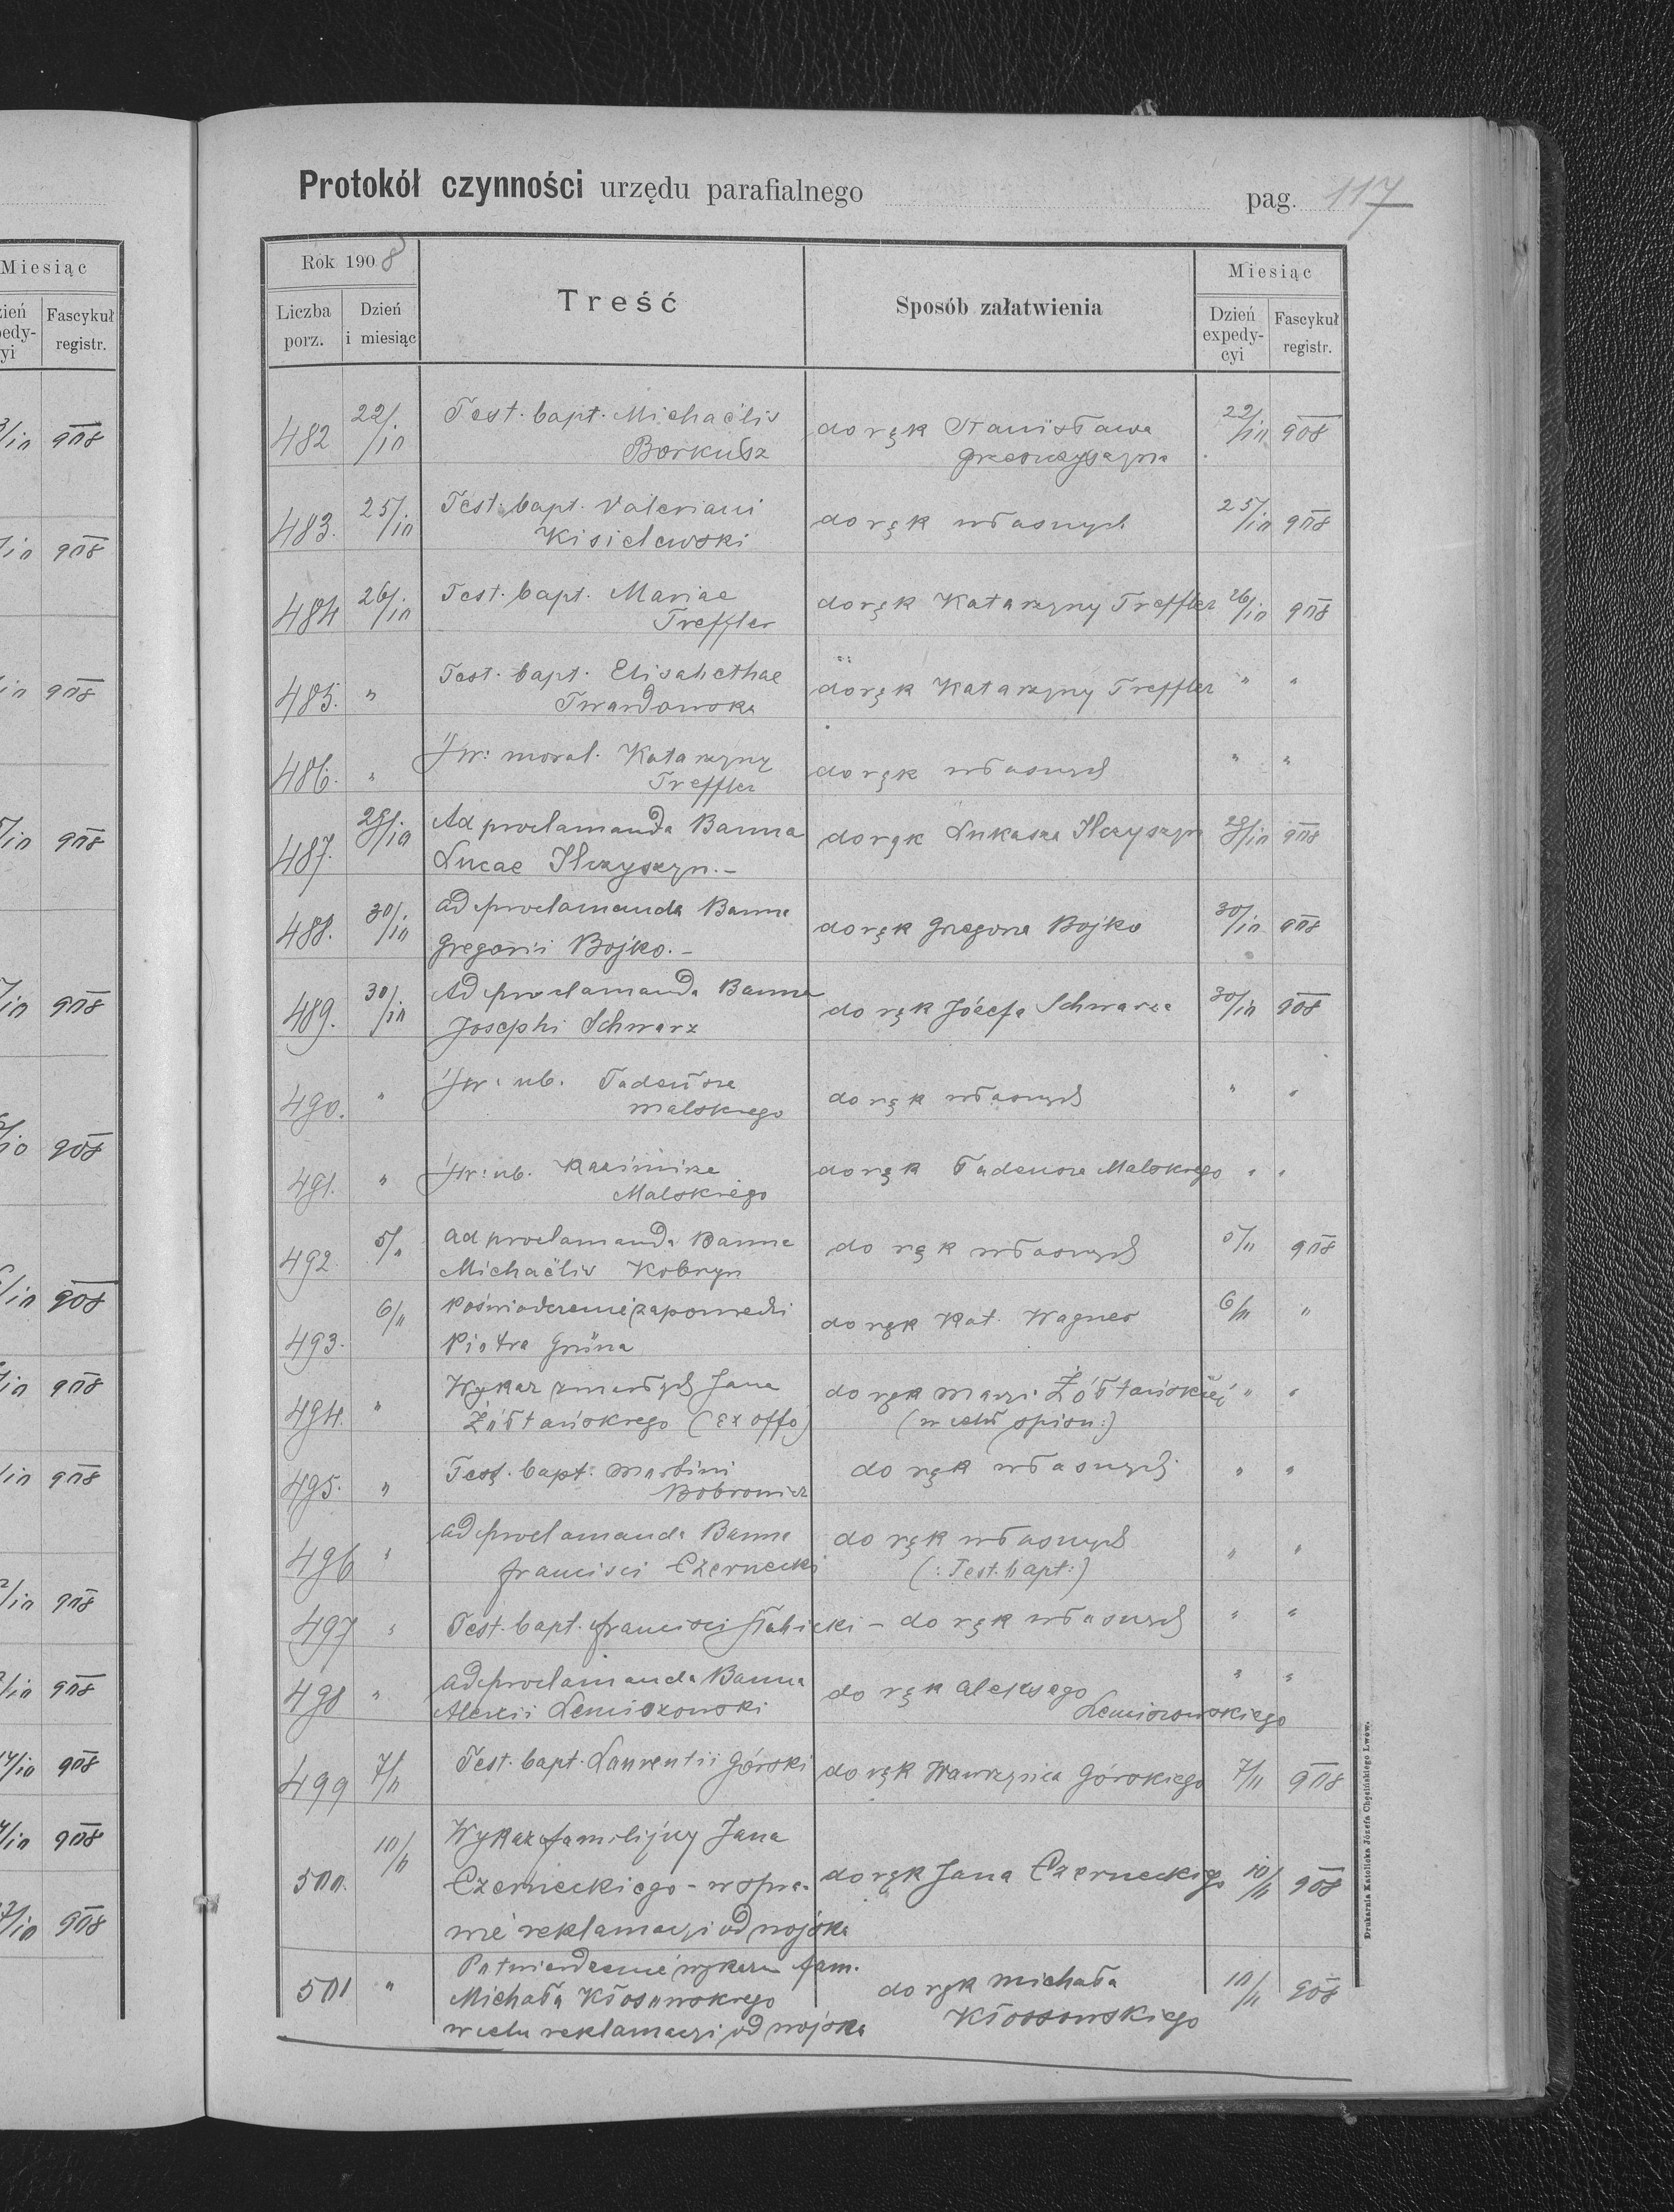 Protokół czynności urzędu parafialnego pag. 117
Rok 1908
Miesiąc
Liczba porz.
Dzień i miesiąc
Treść
Sposób załatwienia
Dzień expedycyi
Fascykuł registr.
482 22/10 Test. bapt. Michaëlis do rąk Stanisława 22/10 908
Borkusz
483. 25/10 Test. bapt. Valeriani do rąk własnych 25/10 908
Kisielewski
484 26/10 Test. bapt. Mariae do rąk Katarzyny Treffler 26/10 908
Treffler
485. " Test. bapt. Elisabethae do rąk Katarzyny Treffler " "
Twardowska
486. " Św: moral. Katarzyny do rąk własnych " "
Treffler
487. 28/10 Ad proclamanda Banna do rąk Łukasza Ilczyszyn 28/10 908
Lucae Ilczyszyn. -
488. 30/10 ad proclamanda Banna do rąk Grzegorza Bojko 30/10 908
Gregorii Bojko. -
489. 30/10 Ad proclamanda Banna do rąk Józefa Schwarza 30/10 908
Josephi Schwarz
490. " Św: ub. Tadeusza do rąk własnych " "
Malskiego
491. " Św: ub. Kazimirza do rąk Tadeusza Malskiego " "
Malskiego
492. 5/11 ad proclamanda Banna do rąk własnych 5/11 908
Michaëlis Kobryn
493. 6/11 Poświadczenie zapowiedzi do rąk Kat. Wagner 6/11 "
Piotra Grüna
494. " Wykaz zmarłych Jana do rąk Maryi Żółtańskiej " "
Żółtańskiego (ex offo) (w celu spisu:)
495. " Test. bapt. Martini do rąk własnych " "
Bobrowicz
496 " ad proclamanda Banna do rąk własnych " "
Francisci Czernecki (: Test. bapt:)
497 " Test. bapt. Francisci - do rąk własnych " "
498 " ad proclamanda Banna do rąk Aleksego " "
Alexii Lemiszowski Lemiszowskiego
499 7/11 Test. bapt. Laurentii Górski do rąk Wawrzyńca Górskiego 7/11 908
500. 10/11 Wykaz familijny Jana do rąk Jana Czerneckiego 10/11 908
Czerneckiego - w spra-
wie reklamacyi od wojska
501 " Potwierdzenie wykazu fam. do rąk Michała 10/11 908
Michała Kłosowskiego Kłossowskiego
w celu reklamacyi od wojska
Drukarnia Katolicka Józefa Chęcińskiego Lwów.
Miesiąc
Fascykuł registr.